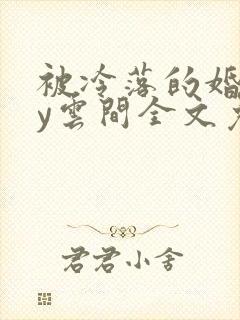 被冷落的婚
y雲間全文
君君小舍